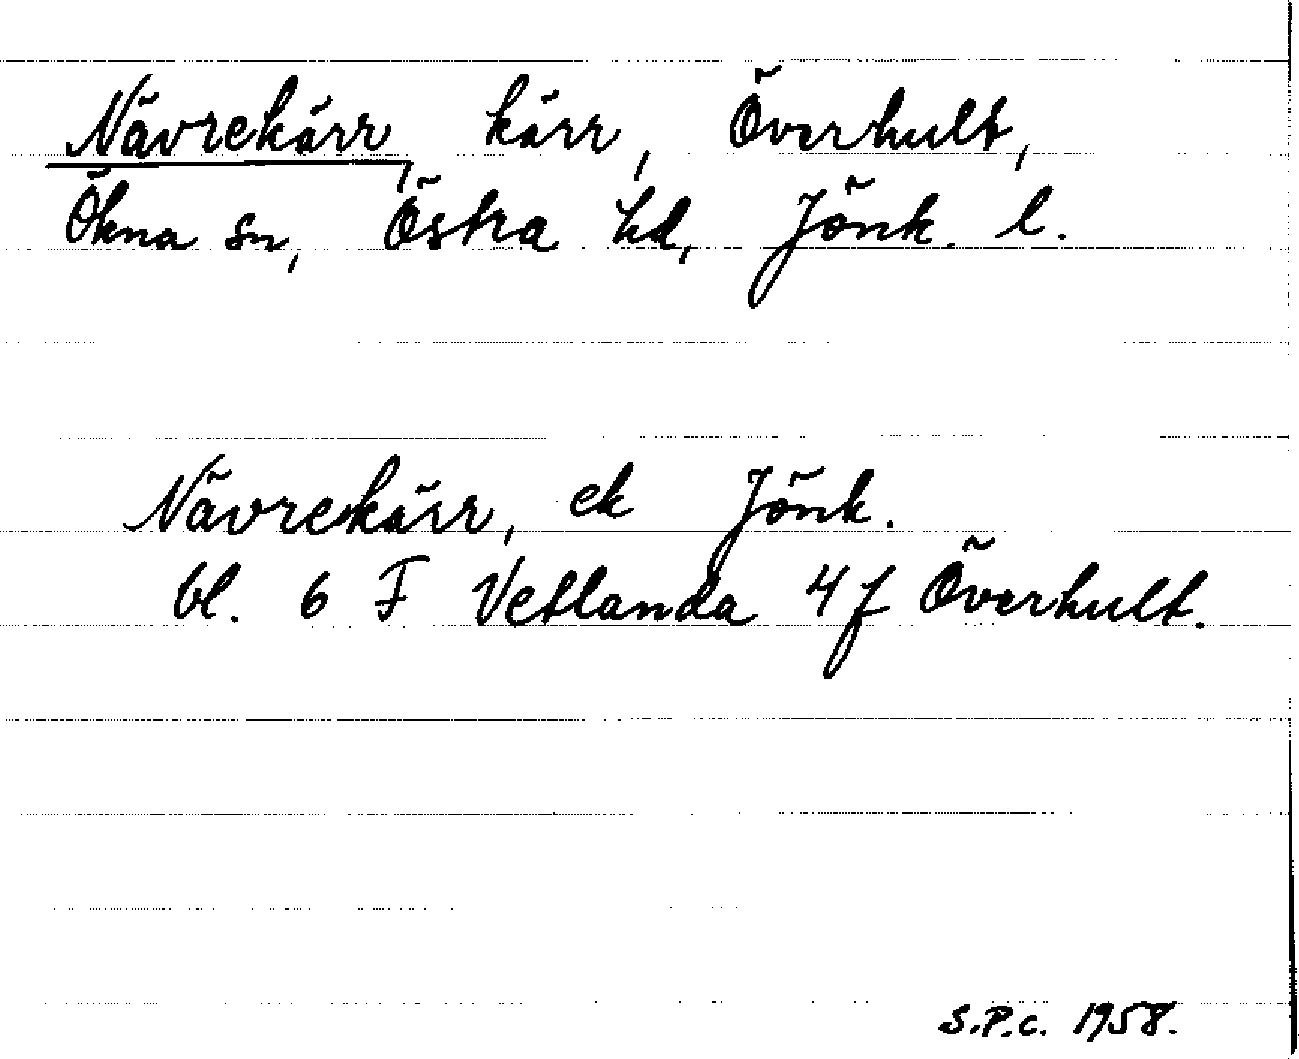 Nävrekärr, kärr, Överhult,
Ökna sn, Östra hd, Jönk. l.
Nävrekärr, ek Jönk.
bl. 6 F Vetlanda 4 f Överhult.
S.P.C. 1958.